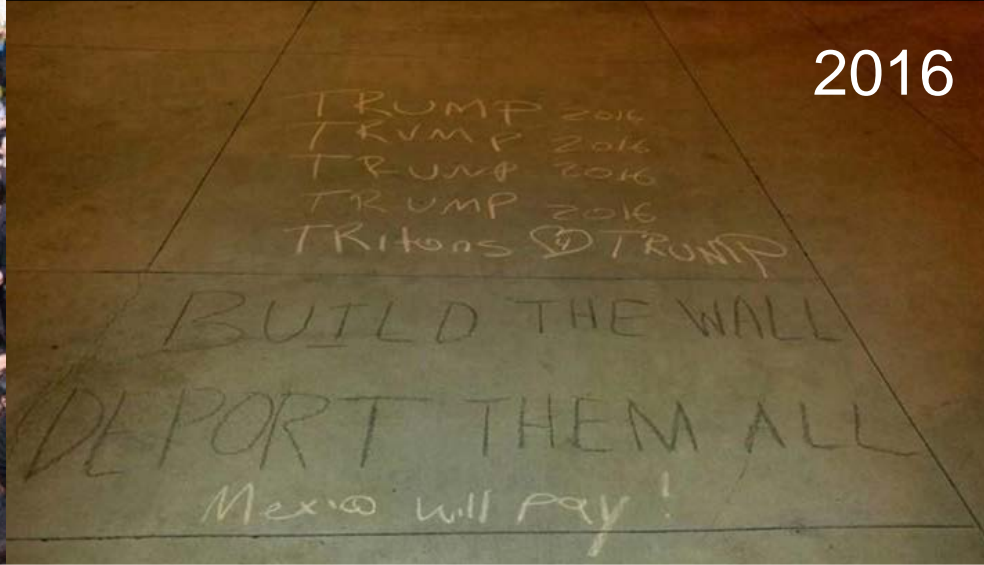 2016
TRUMP 2016
TRUMP 2016
TRUMP 2016
TRUMP 2016
TRitons TRUMP
BUILD THE WALL
DEPORT THEM ALL
Mexico will pay!